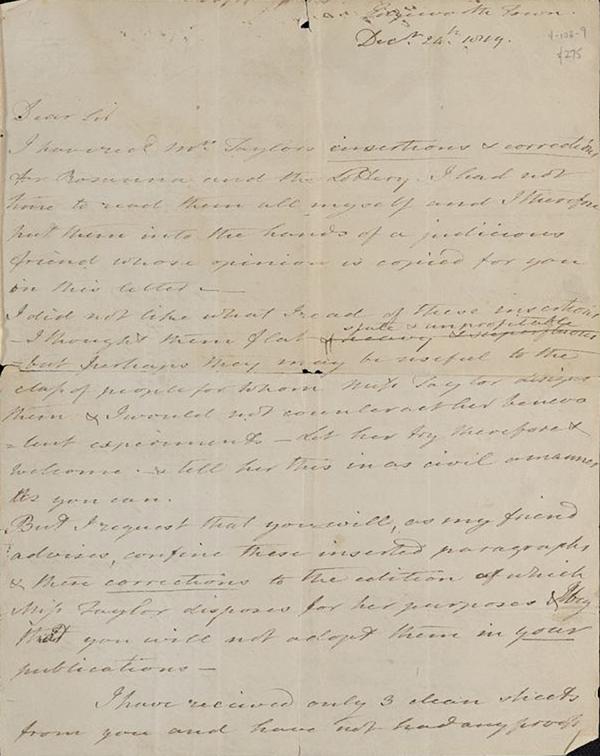 Edgeworth Town.
Decr. 24th. 1819.
Dear Sir
I have read Mrs. Taylors insertions & corrections
for Rosanna and the Lottery. I had not
time to read them all myself and I therefore
put them into the hands of a judicious
friend whose opinion is copied for you
on this letter —
I did not like what I read of these insertions
— I thought them flat stale & unprofitable
– but perhaps they may be useful to the
class of people for whom Miss Taylor designs
them & I would not counteract her benevo
-lent experiments — Let her try therefore &
welcome – & tell her this in as civil a manner
as you can.
But I request that you will, as my friend
advises, confine these inserted paragraphs
& these corrections to the edition of which
Miss Taylor disposes for her purposes & I beg
that you will not adopt them in your
publications —
I have received only 3 clean sheets
from you and have not had any proofs